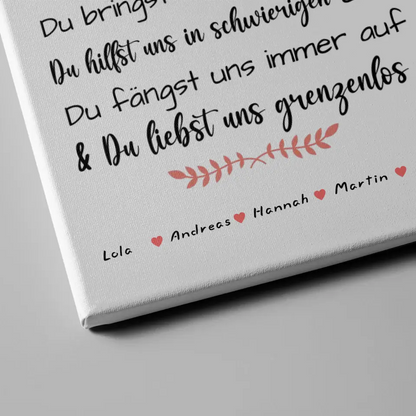 Du bringst
Du hilfst uns in schwierigen
Du fängst uns immer auf
& Du liebst uns grenzenlos
Lola Andreas Hannah Martin